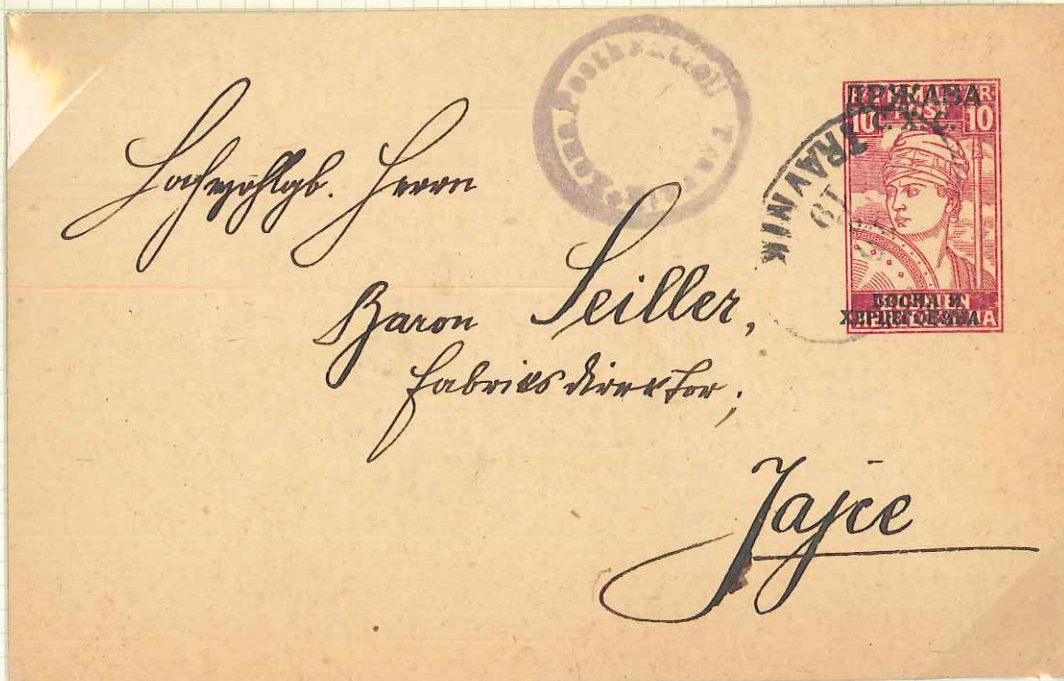 Hochwohlgb. Herrn
Baron Seiller,
Fabriksdirektor;
Jajce
Postkontroll
ДРЖАВА
С. Х. С.
10 10
БОСНА И
ХЕРЦЕГОВИНА
TRAVNIK